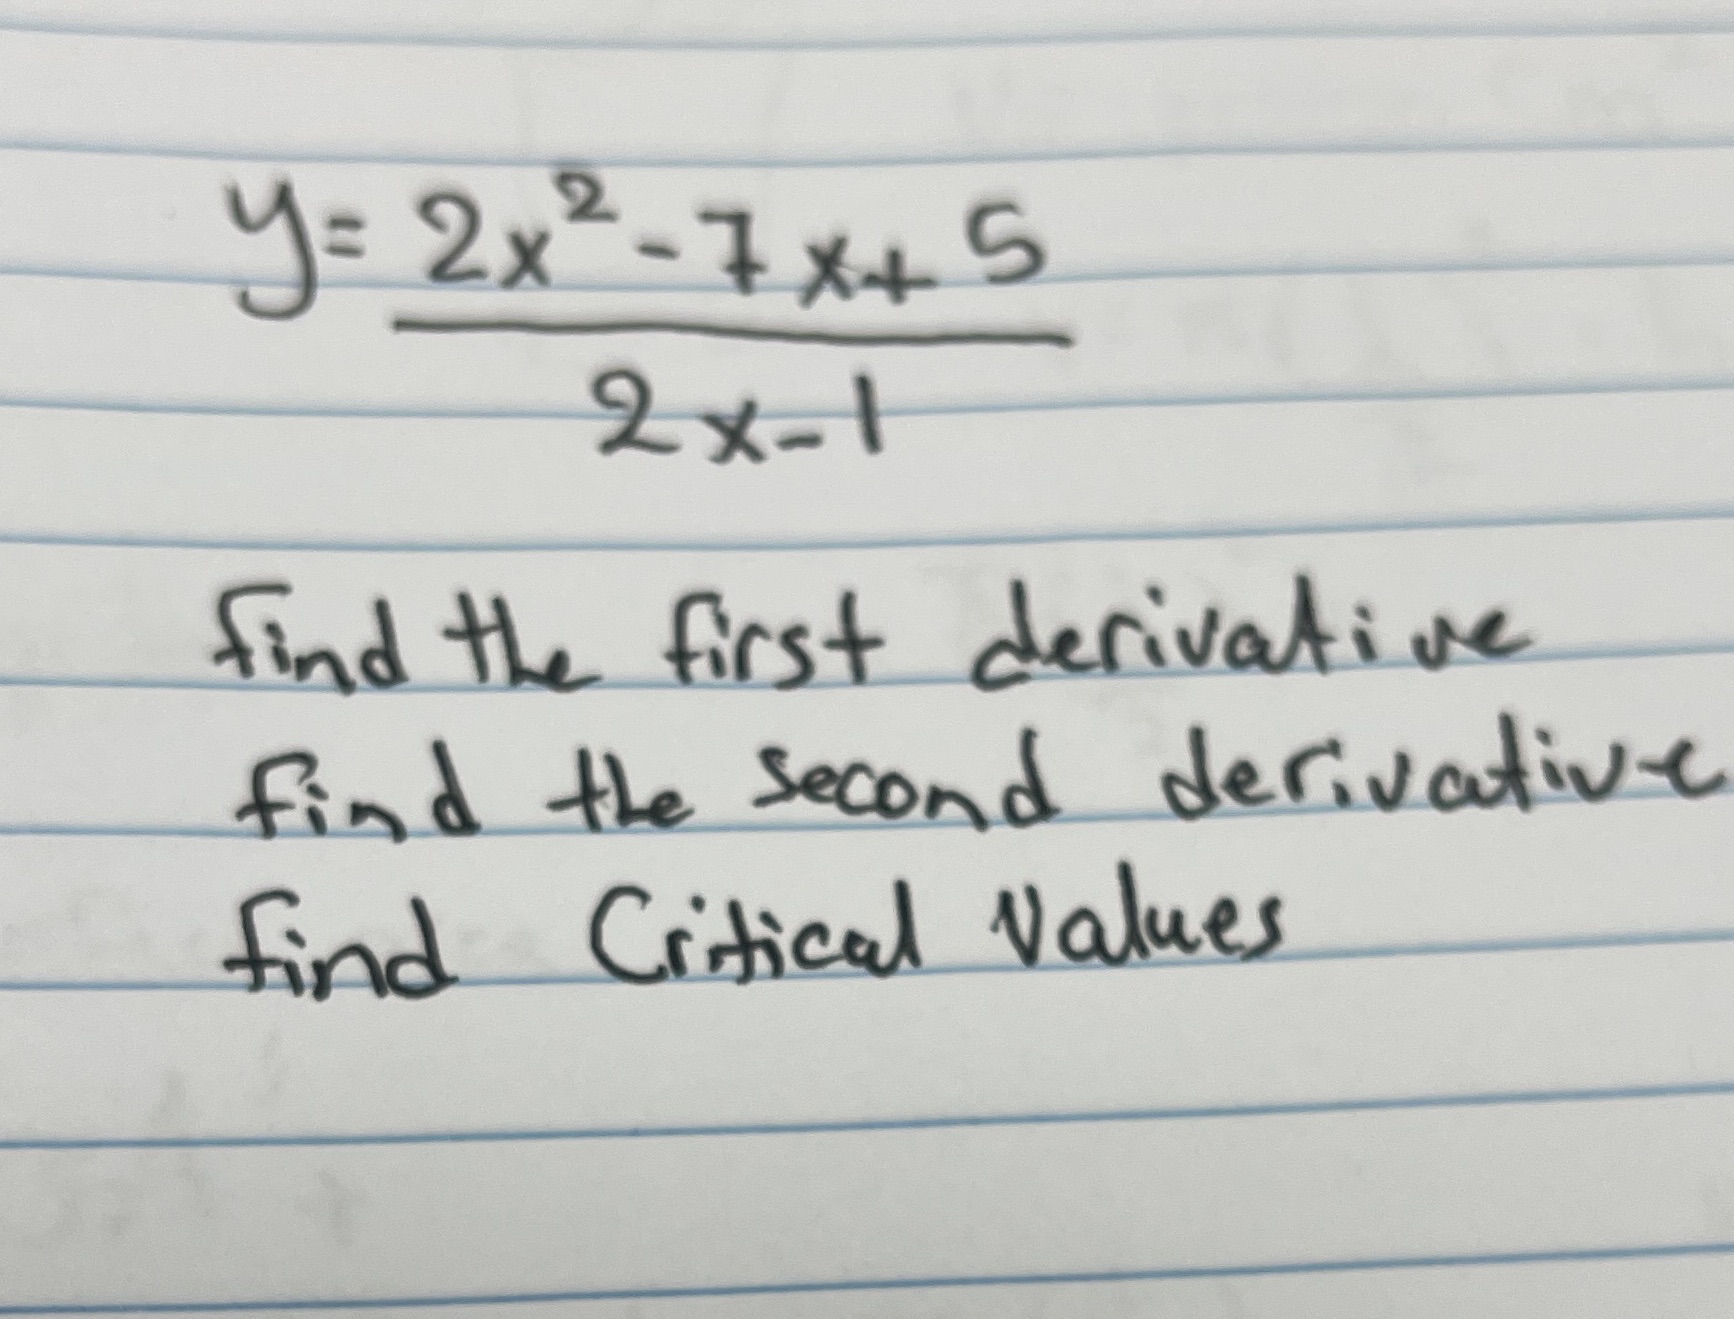 y= 2x²-7x+5
2x-1
find the first derivative
find the second derivative
find Critical Values